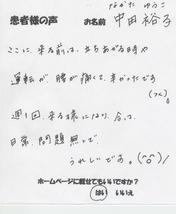 なかた ゆうこ
患者様の声 お名前 中田裕子
ここに、来る前は、立ちあがる時や
運転が、腰が痛くて、辛かったです
(つらく)
週1回、来る様になり、今は、
日常、問題無しで、
うれしいです。(^o^)/
ホームページに載せてもいいですか？
はい いいえ